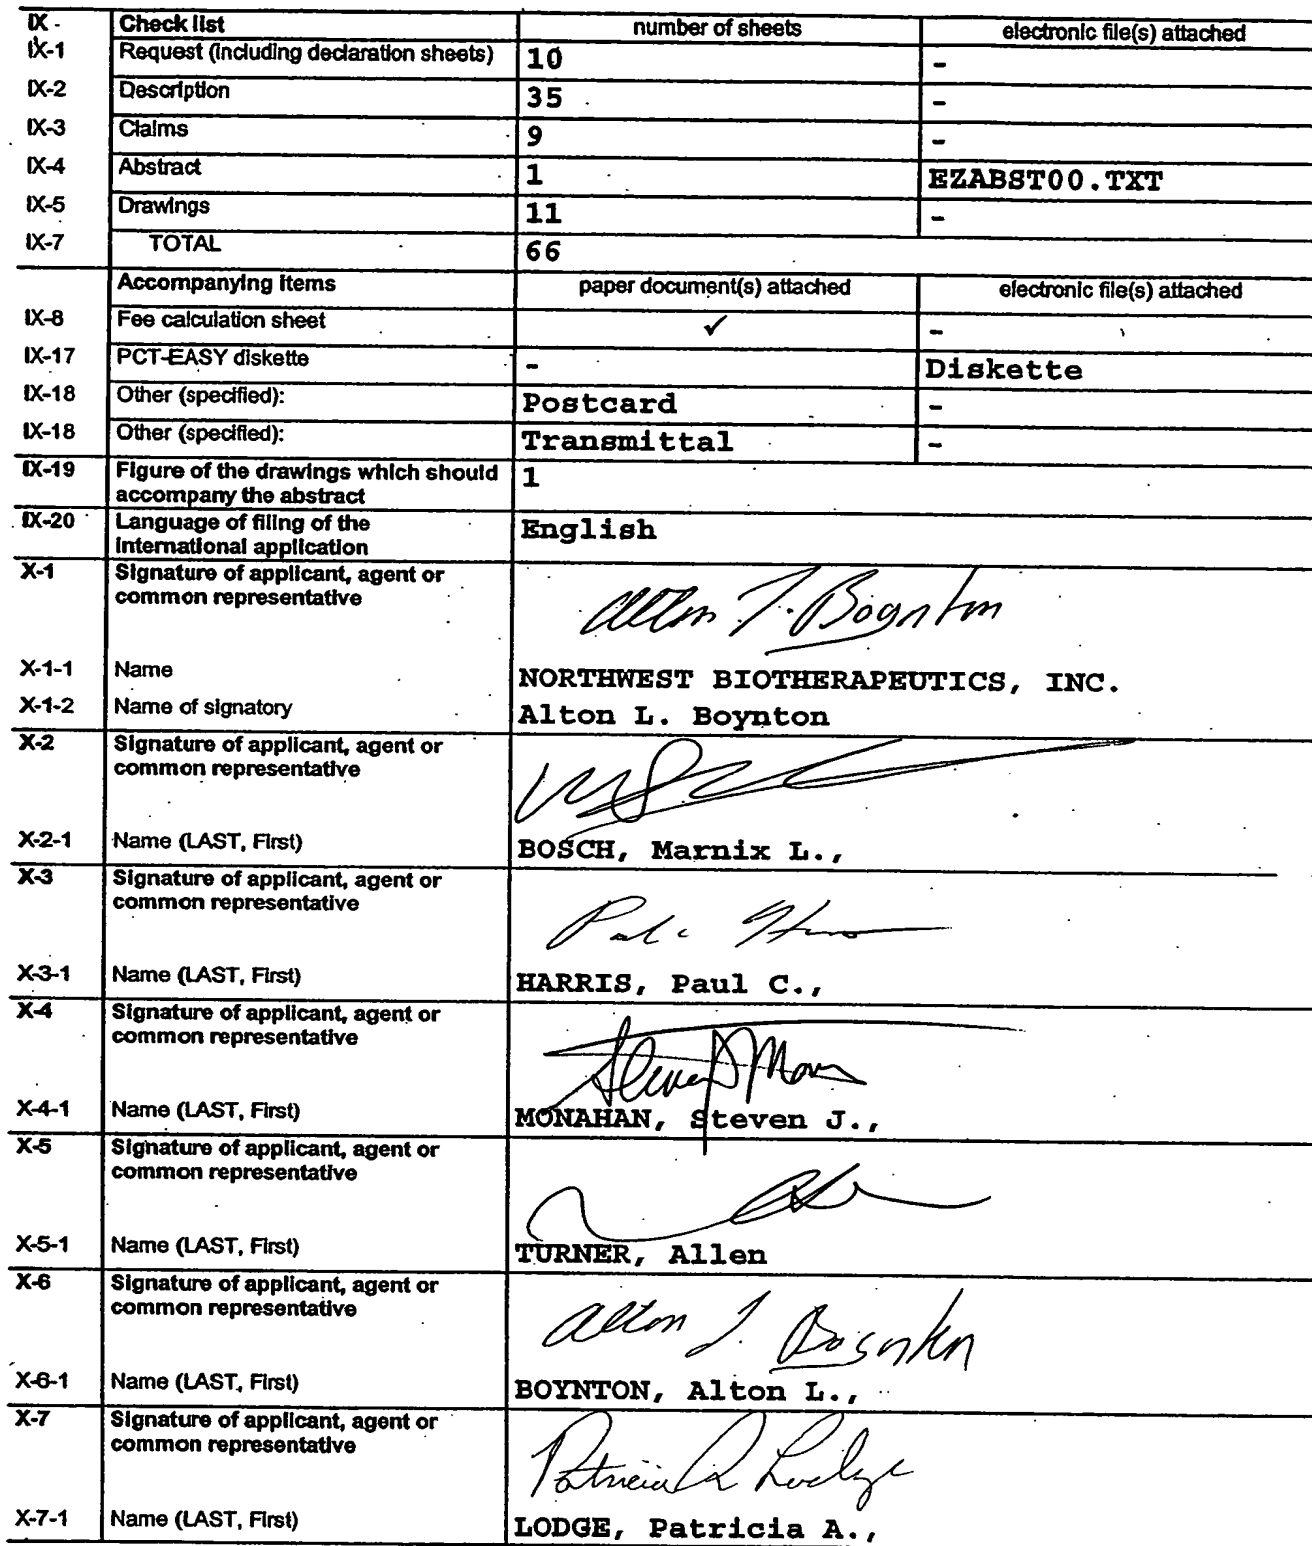 IX - Check list number of sheets electronic file(s) attached
IX-1 Request (including declaration sheets) 10 -
IX-2 Description 35 -
IX-3 Claims 9 -
IX-4 Abstract 1 EZABST00.TXT
IX-5 Drawings 11 -
IX-7 TOTAL 66
Accompanying items paper document(s) attached electronic file(s) attached
IX-8 Fee calculation sheet ✓ -
IX-17 PCT-EASY diskette - Diskette
IX-18 Other (specified): Postcard -
IX-18 Other (specified): Transmittal -
IX-19 Figure of the drawings which should 1
accompany the abstract
IX-20 Language of filing of the English
international application
X-1 Signature of applicant, agent or
common representative
Alton L. Boynton
X-1-1 Name NORTHWEST BIOTHERAPEUTICS, INC.
X-1-2 Name of signatory Alton L. Boynton
X-2 Signature of applicant, agent or
common representative
X-2-1 Name (LAST, First) BOSCH, Marnix L.,
X-3 Signature of applicant, agent or
common representative
X-3-1 Name (LAST, First) HARRIS, Paul C.,
X-4 Signature of applicant, agent or
common representative
X-4-1 Name (LAST, First) MONAHAN, Steven J.,
X-5 Signature of applicant, agent or
common representative
X-5-1 Name (LAST, First) TURNER, Allen
X-6 Signature of applicant, agent or
common representative
Alton L. Boynton
X-6-1 Name (LAST, First) BOYNTON, Alton L.,
X-7 Signature of applicant, agent or
common representative
Patricia A Lodge
X-7-1 Name (LAST, First) LODGE, Patricia A.,